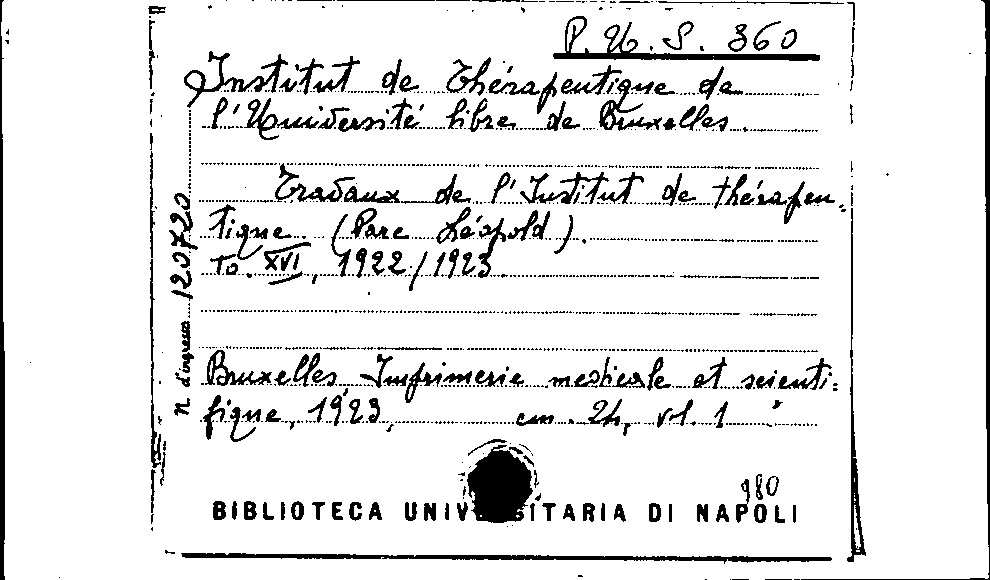 P. U. S. 360
Institut de Thérapeutique de
l'Université libre de Bruxelles.
Travaux de l'Institut de thérapeu-
tique. (Parc Léopold).
To. XVI, 1922/1923
Bruxelles, Imprimerie medicale et scienti-
fique, 1923, cm. 24, vl. 1
N. d'ingresso 120720
980
BIBLIOTECA UNIV SITARIA DI NAPOLI